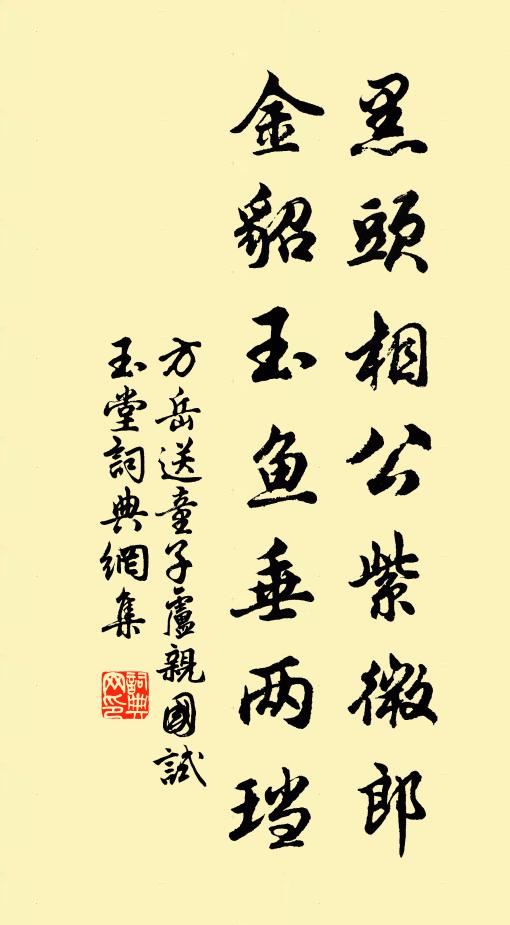 黑頭相公紫微郎
金貂玉鱼垂两珰
方岳送童子盧親國試
玉堂詞典網集
詞典网印